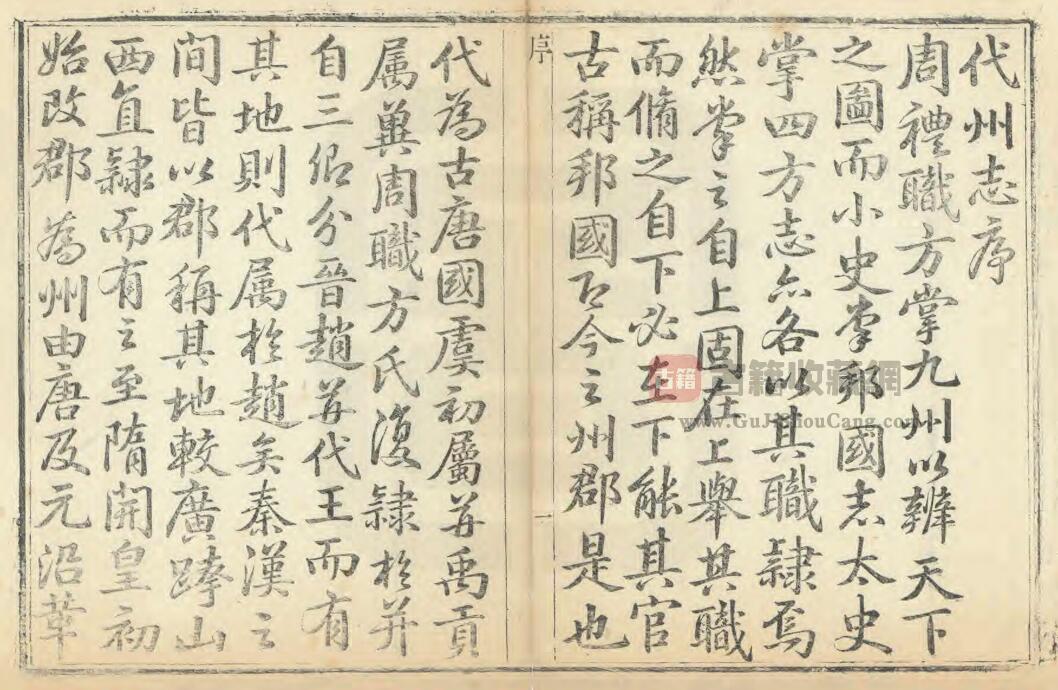 代州志序
周禮職方掌九州以辨天下
之圖而小史掌邦國志太史
掌四方志亦各以其職隷焉
然掌之自上固在上舉其職
而脩之自下必在下能其官
古稱邦國即今之州郡是也
序
一
代為古唐國虞初屬并禹貢
属冀周職方氏復隷於并
自三卿分晉趙并代王而有
其地則代属於趙矣秦漢之
間皆以郡稱其地較廣跨山
西直隷而有之至隋開皇初
始改郡為州由唐及元沿革
古籍
古籍收藏網
www.GuJiShouCang.com